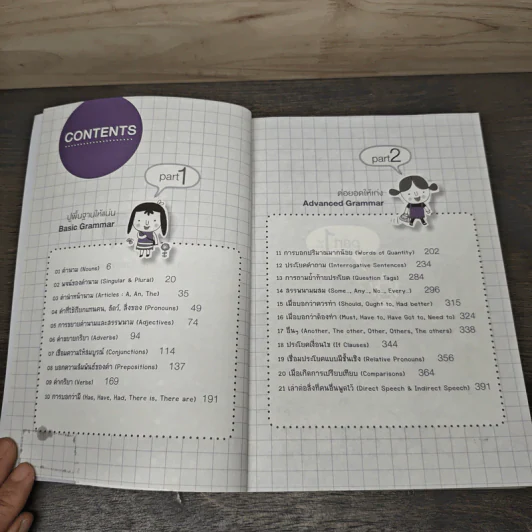 CONTENTS
part1
ปูพื้นฐานให้แน่น
Basic Grammar
01 คำนาม (Nouns) 6
02 พจน์ของคำนาม (Singular & Plural) 20
03 คำนำหน้านาม (Articles : A, An, The) 35
04 คำที่ใช้เรียกแทนคน, สัตว์, สิ่งของ (Pronouns) 49
05 การขยายคำนามและสรรพนาม (Adjectives) 74
06 คำขยายกริยา (Adverbs) 94
07 เชื่อมความให้สมบูรณ์ (Conjunctions) 114
08 บอกความสัมพันธ์ของคำ (Prepositions) 137
09 คำกริยา (Verbs) 169
10 การบอกว่ามี (Has, Have, Had, There is, There are) 191
part2
ต่อยอดให้เก่ง
Advanced Grammar
11 การบอกปริมาณมากน้อย (Words of Quantity) 202
12 ประโยคคำถาม (Interrogative Sentences) 234
13 การถามย้ำท้ายประโยค (Question Tags) 284
14 สรรพนามผสม (Some_, Any_, No_, Every_) 296
15 เมื่อบอกว่าควรทำ (Should, Ought to, Had better) 315
16 เมื่อบอกว่าต้องทำ (Must, Have to, Have Got to, Need to) 324
17 อื่นๆ (Another, The other, Other, Others, The others) 338
18 ประโยคเงื่อนไข (If Clauses) 344
19 เชื่อมประโยคแบบมีชั้นเชิง (Relative Pronouns) 356
20 เมื่อเกิดการเปรียบเทียบ (Comparisons) 364
21 เล่าต่อสิ่งที่คนอื่นพูดไว้ (Direct Speech & Indirect Speech) 391